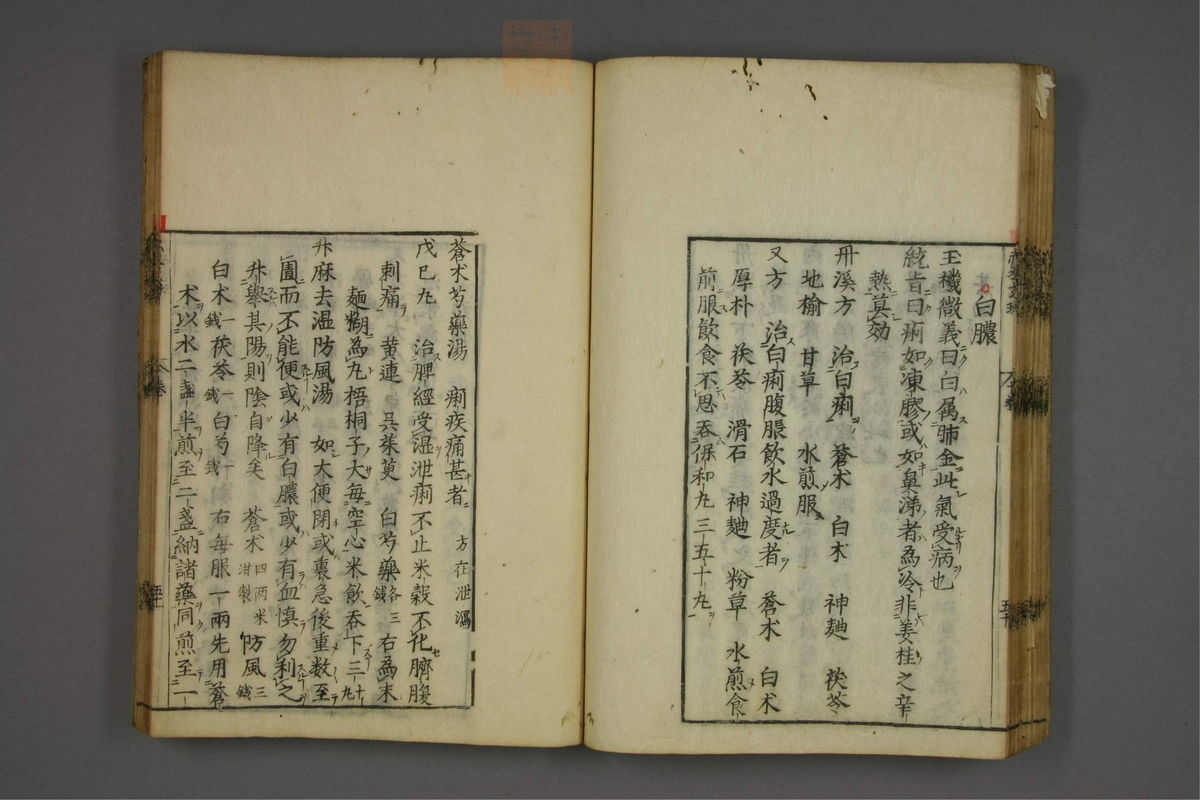 白膿
玉機微義曰白属肺金此氣受病也
統旨曰痢如凍膠或如鼻涕者爲冷非姜桂之辛
熱莫効
丹溪方 治白痢 蒼朮 白朮 神麯 茯苓
地榆 甘草 水煎服
又方 治白痢腹脹飲水過度者 蒼朮 白朮
厚朴 茯苓 滑石 神麯 粉草 水煎食
前服飲食不思吞保和丸三五十丸
蒼朮芍藥湯 痢疾痛甚者 方在泄瀉
戊己丸 治脾經受湿泄痢不止米穀不化臍腹
刺痛 黄連 呉茱萸 白芍藥各三錢 右爲末
麺糊為丸梧桐子大毎空心米飲吞下三十丸
升麻去湿防風湯 如大便閉或裏急後重数至
圊而不能便或少有白膿或少有血慎勿利之
升擧其陽則陰自降矣 蒼朮四两米泔製 防風三錢
白朮一錢茯苓一錢白芍一錢 右毎服一兩先用蒼
朮以水二盞半煎至二盞納諸藥同煎至一